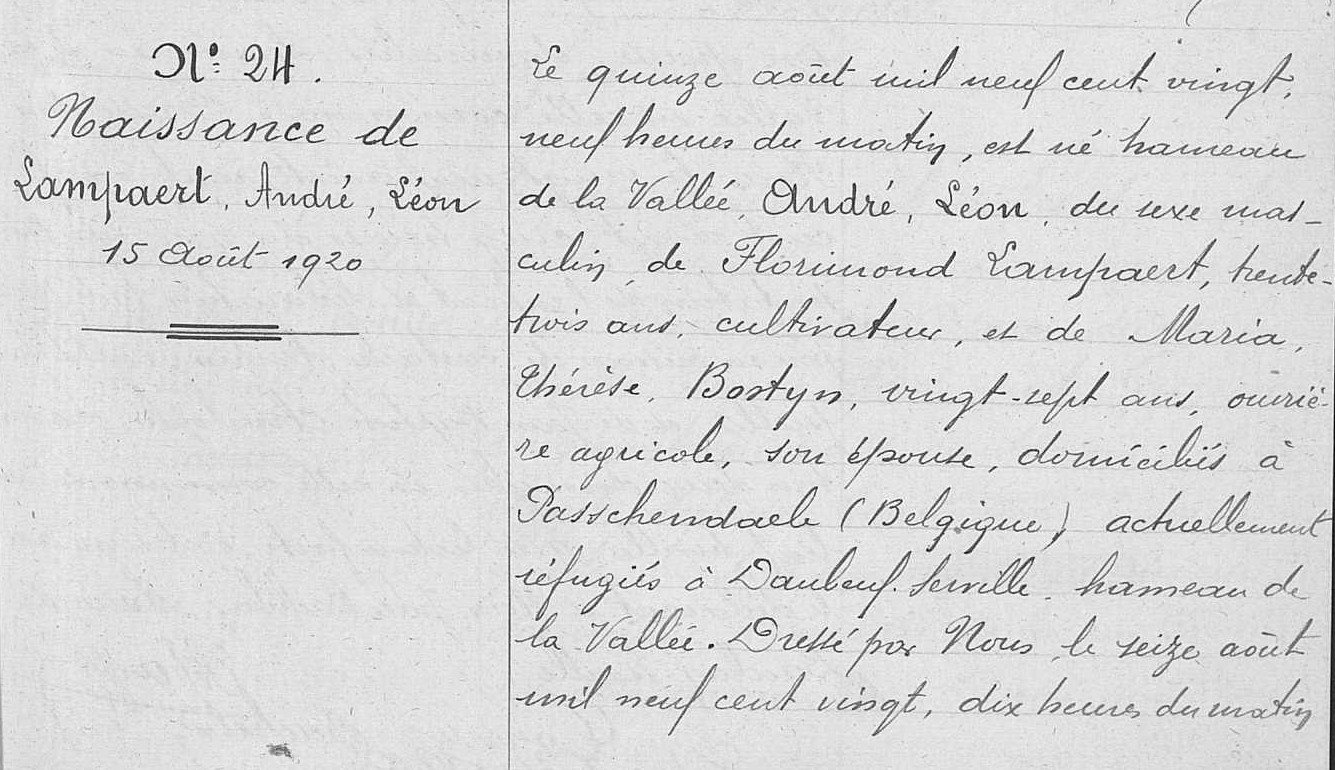 N° 24.
Naissance de
Lampaert, André, Léon
15 Août 1920
Le quinze août mil neuf cent vingt,
neuf heures du matin, est né hameau
de la Vallée, André, Léon, du sexe mas-
culin, de Florimond Lampaert, trente-
trois ans, cultivateur, et de Maria,
Thérèse, Bostyn, vingt-sept ans, ouvriè-
re agricole, son épouse, domiciliés à
Passchendaele (Belgique) actuellement
réfugiés à Daubeuf-Serville, hameau de
la Vallée. Dressé par Nous, le seize août
mil neuf cent vingt, dix heures du matin